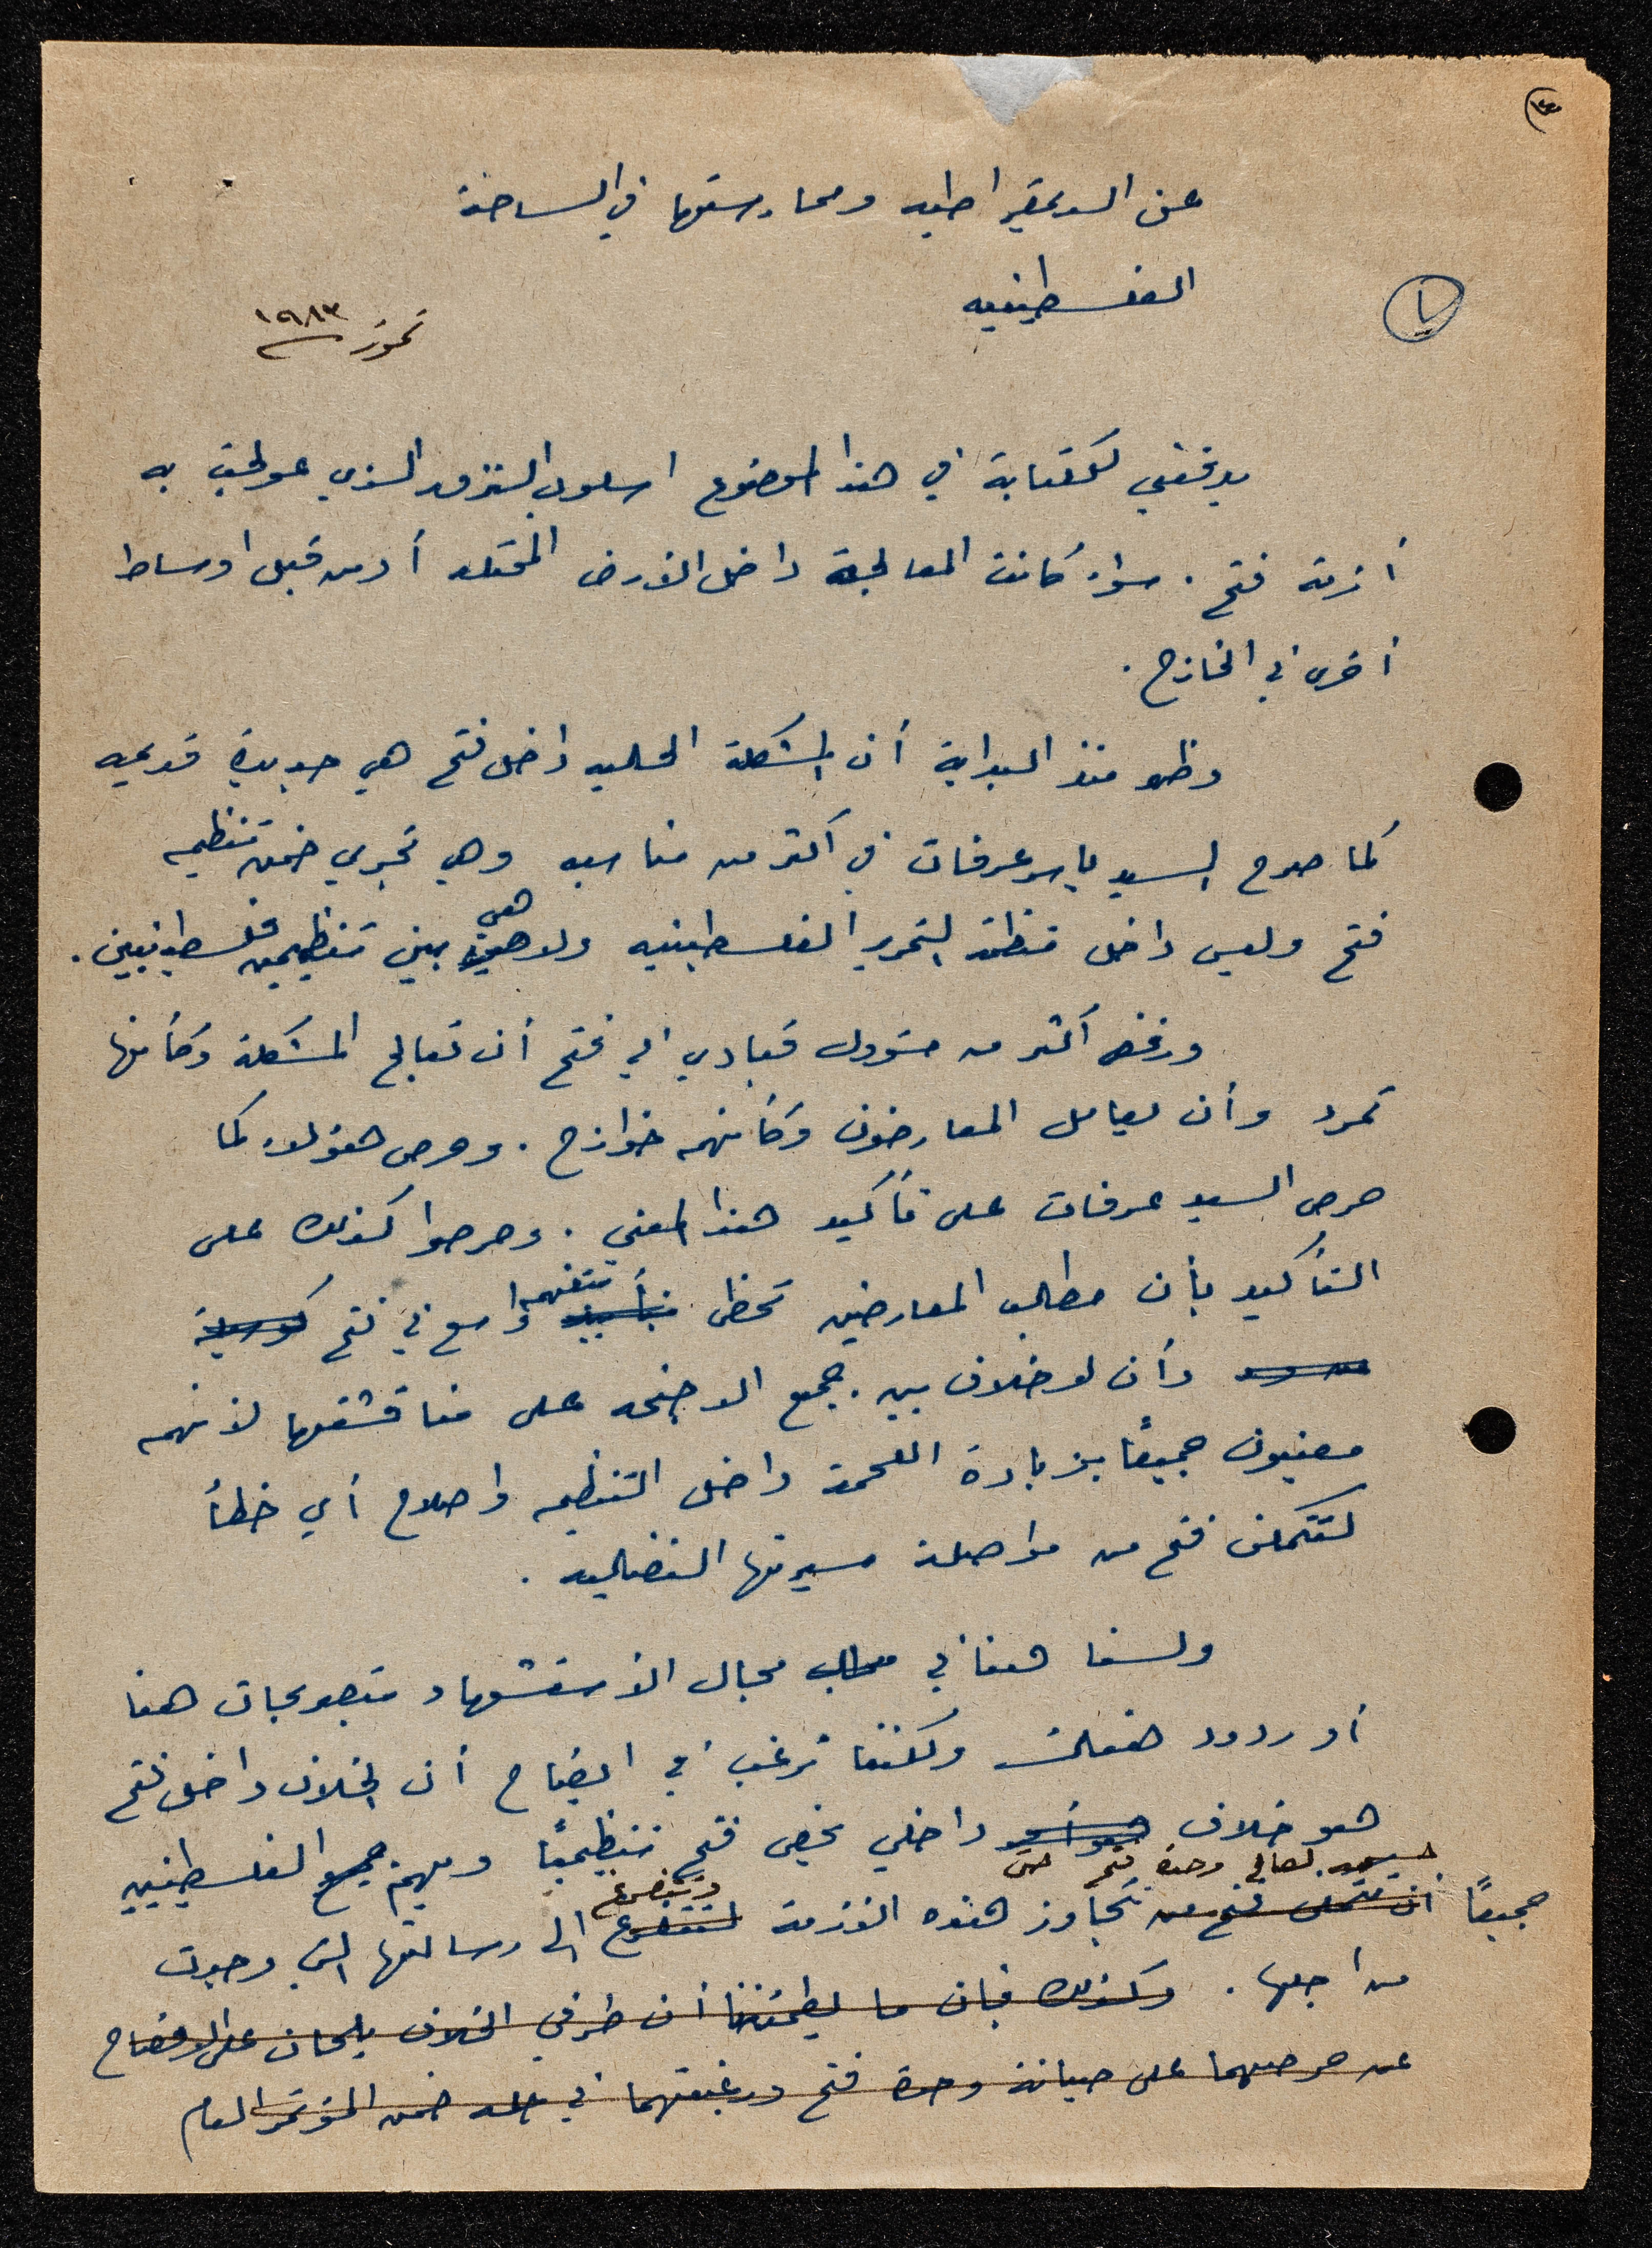 عن الديمقراطيه وممارستها في الساحة
الفلسطينيه
تموز ١٩٨٣
يدفعني للكتابة في هذا الموضوع اسلوب التزمت الذي عولجت به
أزمة فتح. سواء كانت المعالجة داخل الارض المحتله أو من قبل اوساط
أخرى في الخارج.
وظهر منذ البداية أن المشكلة الحاليه داخل فتح هي جديدة قديمه
كما صرح السيد ياسر عرفات في اكثر من مناسبه وهي تجري ضمن تنظيم
فتح وليس داخل منظمة التحرير الفلسطينيه ولا هي بين تنظيمين فلسطينيين.
ورفض أكثر من مسؤول قيادي في فتح أن تعالج المشكلة وكأنها
تمرد وأن يعامل المعارضون وكأنهم خوارج. وحرص هؤلاء كما
حرص السيد عرفات على تأكيد هذا المعنى. وحرصوا كذلك على
التأكيد بأن مطالب المعارضين تحظى بتأييد بتفهم واسع في فتح
وأن لا خلاف بين جميع الاجنحه على مناقشتها لأنهم
معنيون جميعاً بزيادة اللحمة داخل التنظيم واصلاح أي خطأ
لتتمكن فتح من مواصلة مسيرتها النضاليه.
ولسنا هنا في مجال الاستشهاد بتصريحات هنا
أو ردود هناك ولكننا نرغب في ايضاح أن الخلاف داخل فتح
هو خلاف داخلي يخص فتح تنظيمياً ويهم جميع الفلسطينيين
لصالح وحدة فتح حتى
جميعاً أن تتمكن فتح من تجاوز هذه الازمة لتتفرغ وتتفرغ الى رسالتها التي وجدت
من اجلها. وكذلك فإن ما يطمئننا أن طرفي الخلاف يلحان على الافصاح
عن حرصهما على صيانة وحدة فتح ورغبتهما في حله ضمن المؤتمر العام